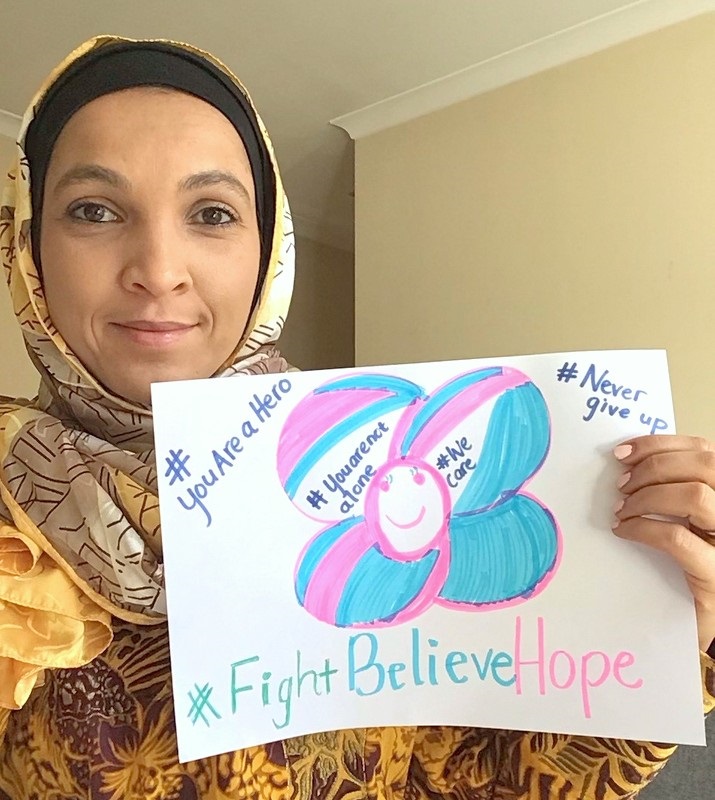 #
you Are a Hero
# Never
give up
# Youarenct
alone
#We
care
#FightBelieveHope